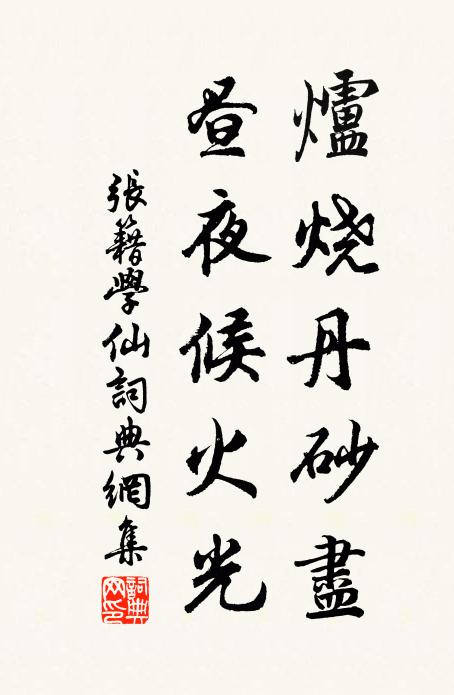 爐燒丹砂盡
昼夜候火光
張籍學仙詞典網集
詞典网印